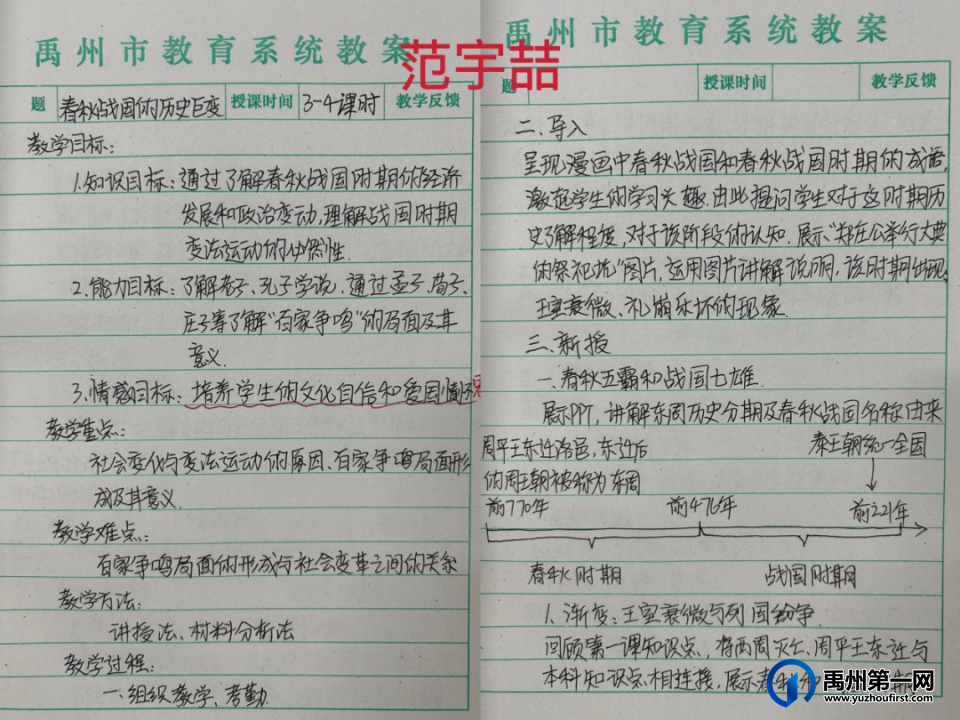 禹州市教育系统教案
范宇喆
题 春秋战国的历史巨变 授课时间 3-4课时 教学反馈
教学目标:
1.知识目标:通过了解春秋战国时期的经济
发展和政治变动,理解战国时期
变法运动的必然性.
2.能力目标:了解老子、孔子学说,通过孟子、荀子、
庄子等了解“百家争鸣”的局面及其
意义.
3.情感目标:培养学生的文化自信和爱国情怀
教学重点:
社会变化与变法运动的原因、百家争鸣局面形
成及其意义.
教学难点:
百家争鸣局面的形成与社会变革之间的关系
教学方法:
讲授法、材料分析法
教学过程:
一.组织教学、考勤.
禹州市教育系统教案
题 授课时间 教学反馈
二.导入
呈现漫画中春秋战国和春秋战国时期的成语,
激起学生的学习兴趣.由此提问学生对于这时期历
史了解程度,对于该阶段的认知.展示“郑庄公举行大典
的祭祀坑”图片,运用图片讲解说明,该时期出现
王室衰微、礼崩乐坏的现象.
三.新授
一.春秋五霸和战国七雄.
展示PPT,讲解东周历史分期及春秋战国名称由来
周平王东迁洛邑,东迁后
的周王朝被称为东周
秦王朝统一全国
前770年 前476年 前221年
春秋时期 战国时期
1.渐变:王室衰微与列国纷争
回顾第一课知识点,将西周灭亡、周平王东迁与
本科知识点相连接,展示春秋
禹州第一网
www.yuzhoufirst.com